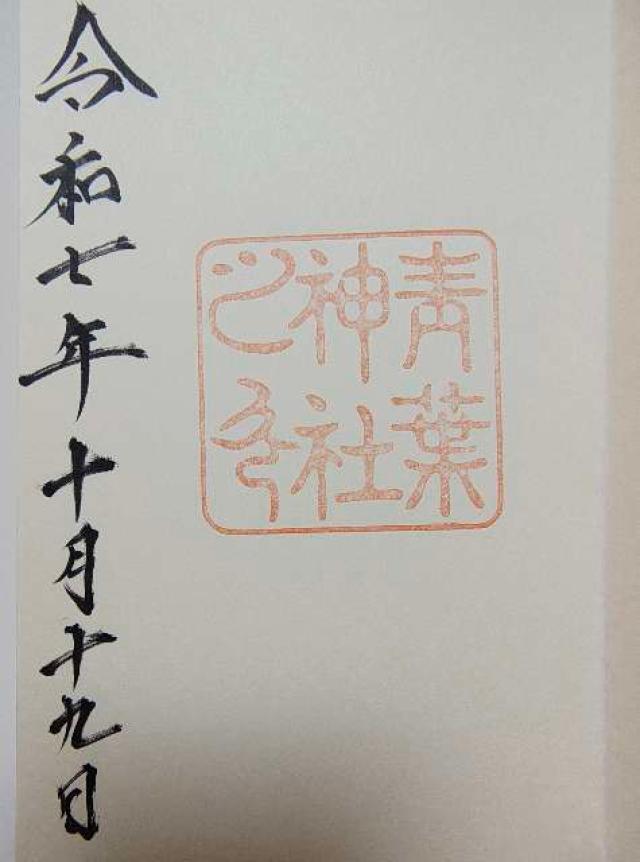 青葉
神社
之印
令和七年十月十九日